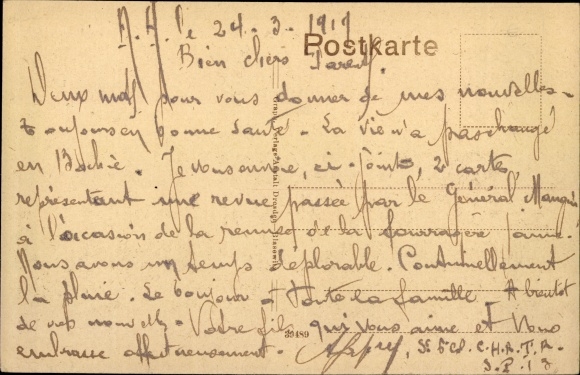 le 24.3.1919
Postkarte
Bien chers Parents
Deux mots pour vous donner de mes nouvelles -
toujours en bonne santé - La vie n'a pas changé
en Bochie. Je vous envoie, ci-joint, 2 cartes
représentant une revue passée par le Général Mangin
à l'occasion de la remise de la fourragère jaune.
Nous avons un temps déplorable. Continuellement
la pluie. Le bonjour à Toute la famille A bientôt
de vos nouvelles - Votre fils qui vous aime et vous
embrasse affectueusement.
39489
C.H.A.T.A.
S.P. 18